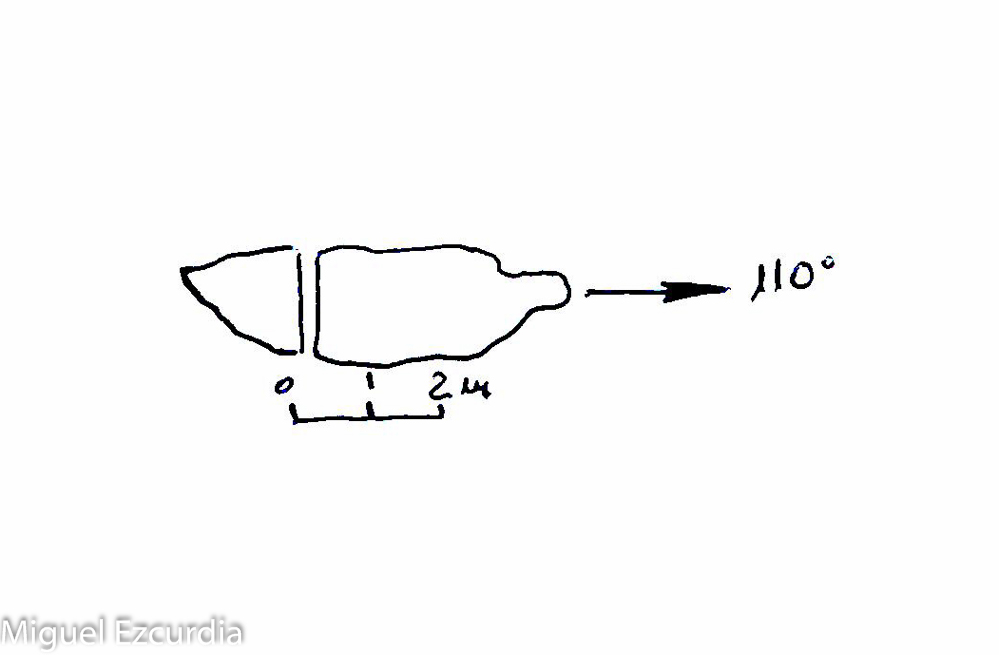 110°
0 1 2 m
Miguel Ezcurdia